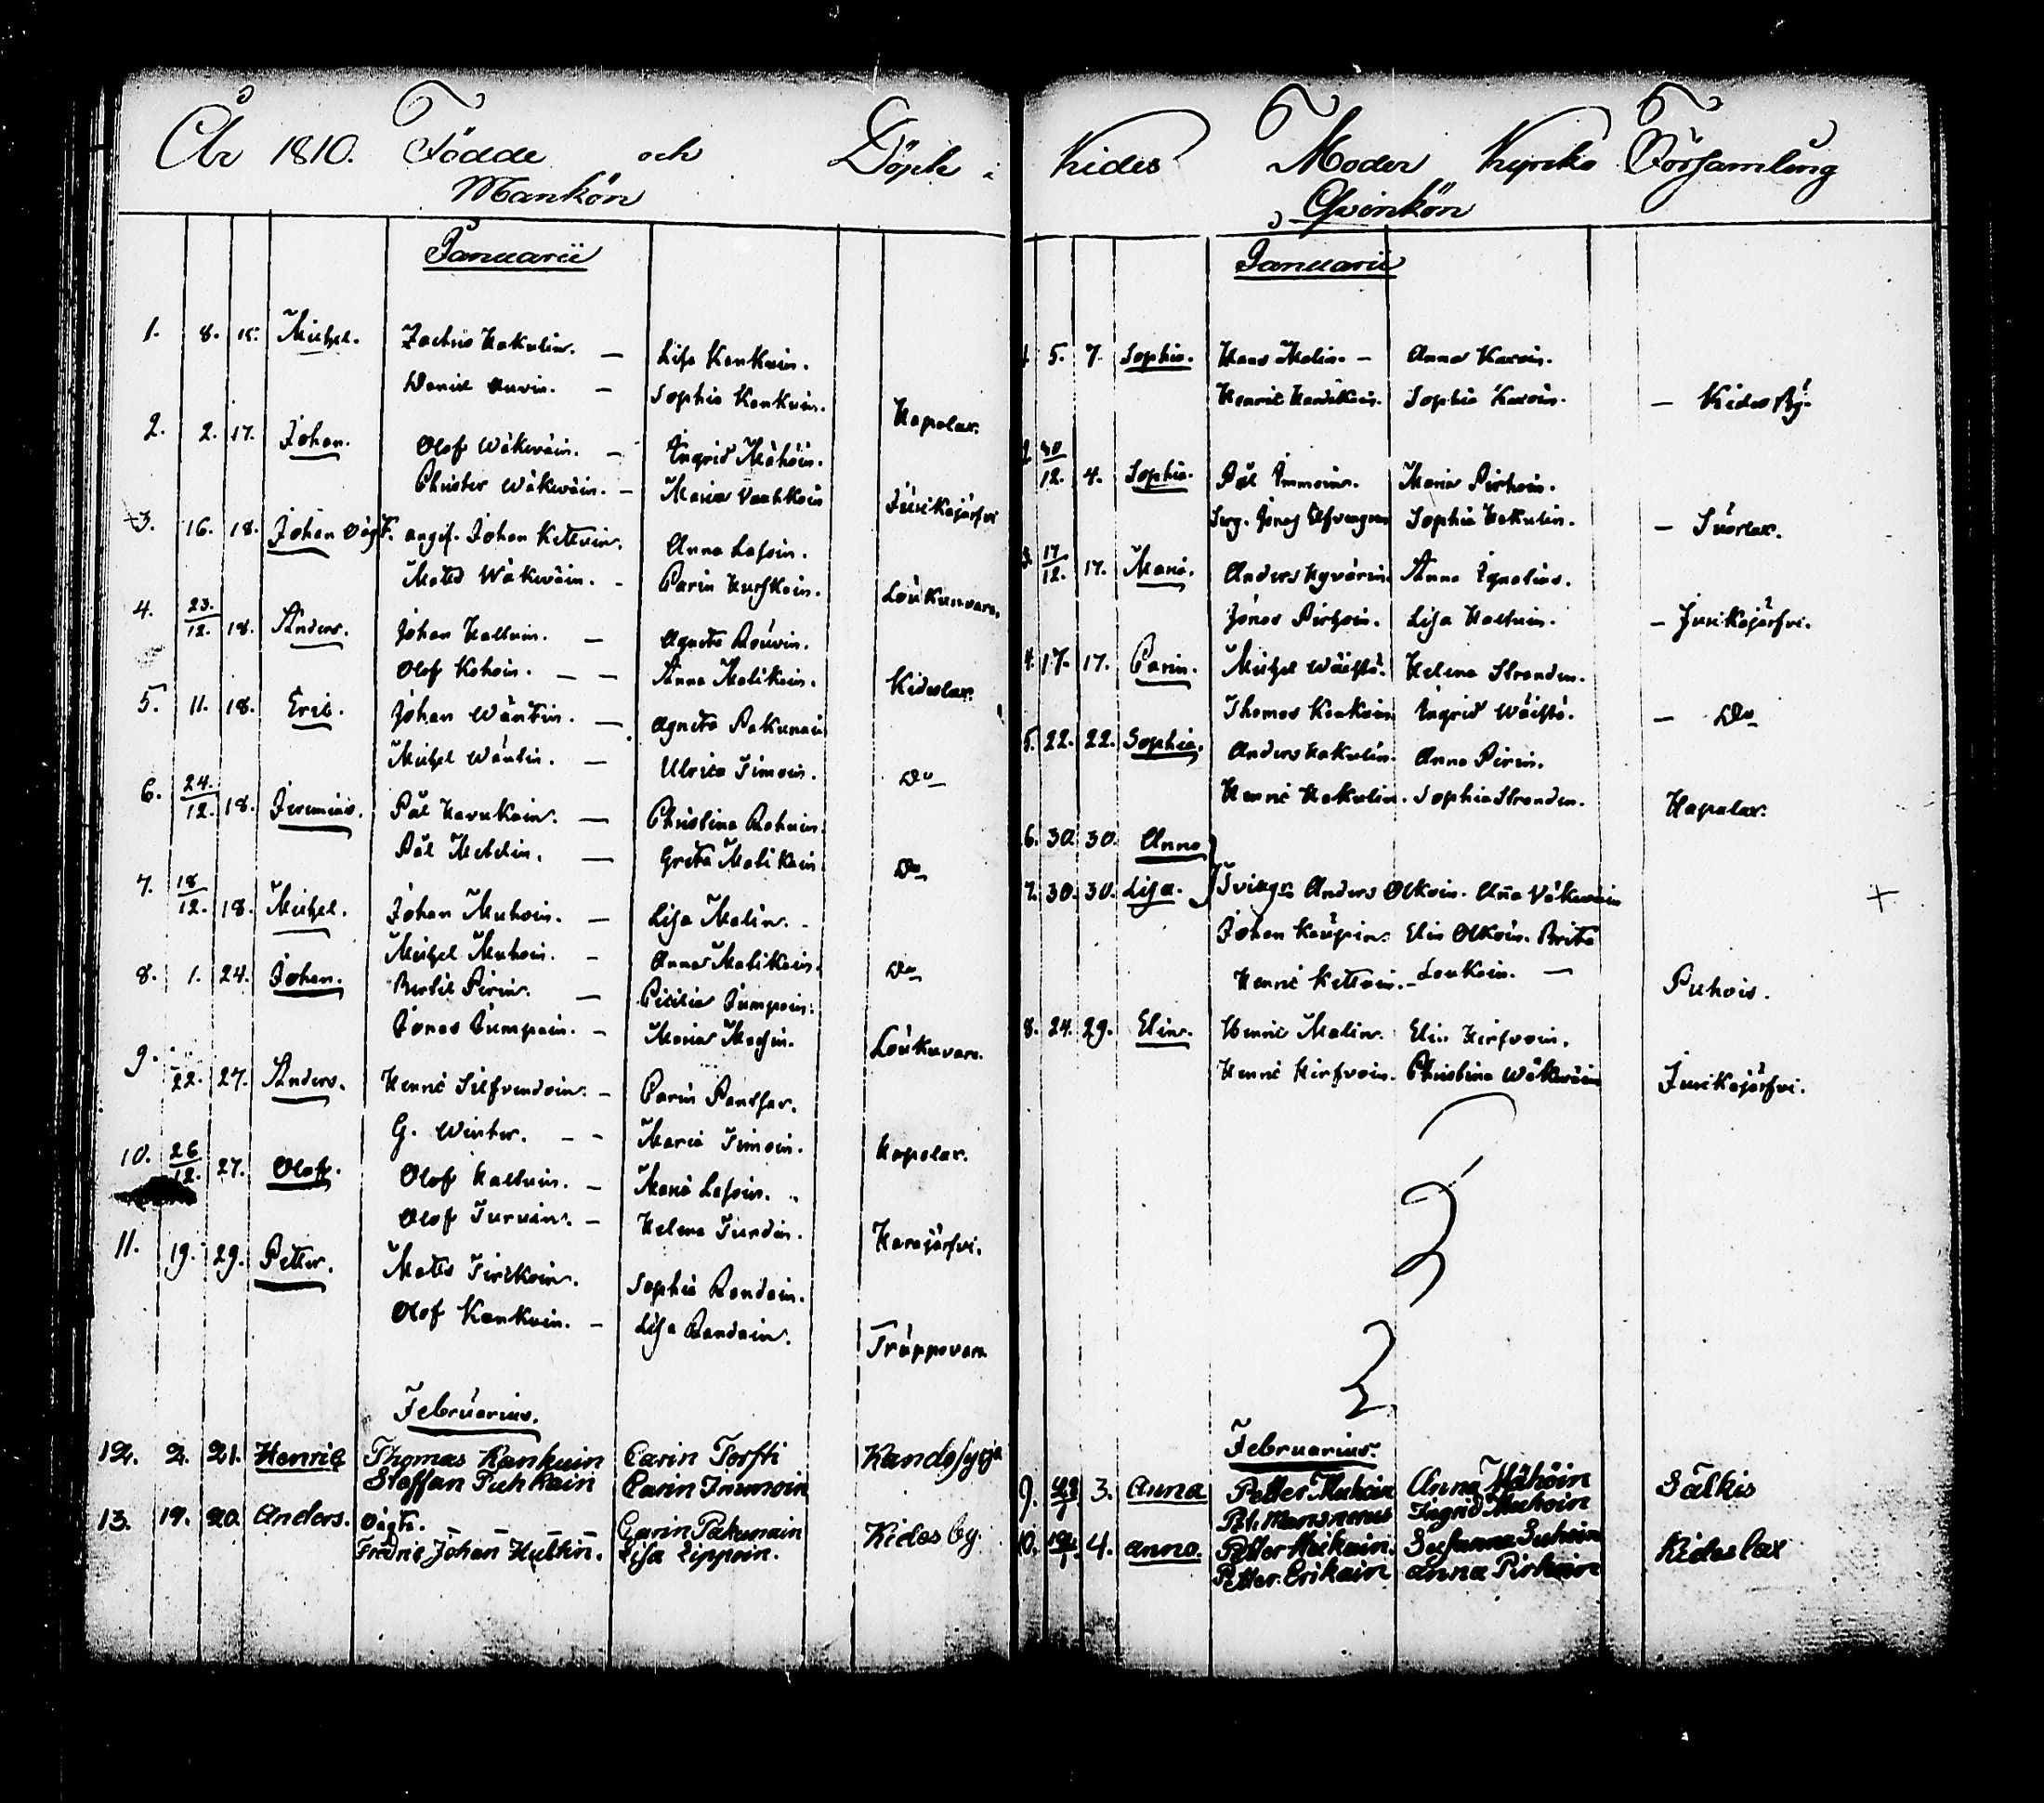 År 1810. Födde och Döpte i
Mankön
Januarii
1. 8. 15. Michel. Zachris Hakulin. — Lisa Konkuin.
Daniel Auvin. — Sophia Konkuin. Hapalax.
2. 2. 17. Johan. Olof Wäkeväin. — Ingrid Mähöin.
Christer Wäkeväin. — Maria Vaahkoin Juurikajärfvi
3. 16. 18. Johan Oägt. angif. Johan Kettuin. Anna Lasoin.
Mats Wäkeväin. - Carin Hurskain. Loukunvara.
4. 23./12. 18. Anders. Johan Kalluin. — Agneta Rouvin.
Olof Kohoin. — — Anna Matikain. Kideslax.
5. 11. 18. Eric. Johan Wäntin. — Agneta Pakunain
Michel Wäntin. — Ulrica Simoin. Do
6. 24./12. 18. Jeremias. Pål Havukain. — Christina Rohuin.
Pål Meldin. — Greta Matikain Do
7. 18/12. 18. Michel. Johan Muhoin. — Lisa Malin. -
Michel Muhoin. - Anna Matikain. Do
8. 1. 24. Johan. Bertil Pirin. — Cicilia Jumpain.
Jonas Jumpain. — Maria Mahin. Loukuvara.
9. 22. 27. Anders. Henric Silfvendoin. — Carin Pantsar.
G. Winter. — - Maria Simoin. Hapalax.
10. 26/12. 27. Olof. Olof Kalluin. — Maria Lasoin. -
Olof Turuin. — Helena Turdin. Harajärfvi.
11. 19. 29. Petter. Mats Tirikoin. Sophia Rondain.
Olof Konkuin. — Lisa Rondain. Truppovara
Februarius.
12. 2. 21. Henric Thomas Kankuin Carin Torsti Kandosyrja
Staffan Puhkain Carin Immoin
13. 19. 20. Anders. Oägt. Carin Pakunain Kides by.
Fredric Johan Hultin. Lisa Lippoin.
Kides Moder Kyrko Församling
Qvinkön
Januarii
1 5. 7. Sophia. Hans Malin. — Anna Karoin.
Henric Hendikain. Sophia Karoin. — Kides By.
2 30/12. 4. Sophia. Pål Immoin. Maria Pirhoin.
Serg. Jonas Elfvengren Sophia Hakulin. — Suorlax.
3. 17/12. 17. Maria. Anders Hyvärin. Anna Ignatius.
Jonas Pirhoin. Lisa Kalluin. — Juurikajärfvi.
4. 17. 17. Carin. Michel Wäistö. Helena Stranden.
Thomas Konkuin Ingrid Wäistö. — Do
5. 22. 22. Sophia. Anders Hakulin. Anna Pirin.
Henric Hakulin. Sophia Stranden. Hapalax.
6. 30. 30. Anna
7. 30. 30. Lisa. Tvilgr. Anders Olkoin. Aña Väkeväin
Johan Kaupin. Elin Olkoin. Brita
Henric Kettuin. — Loukoin. — Puhois.
8. 24. 29. Elin. Henric Malin. Elin Hirfvoin.
Henric Hirfvoin. Christina Wäkeväin Juurikajärfvi.
Februarius.
9. 3. Anna Petter Muhoin Anna Mähöin Sätkis
Pet. Mansnerus Ingrid Muhoin
10. 4. Anna. Petter Muikain. Susanna Suhoin Kideslax
Petter Erikain Anna Pirhoin